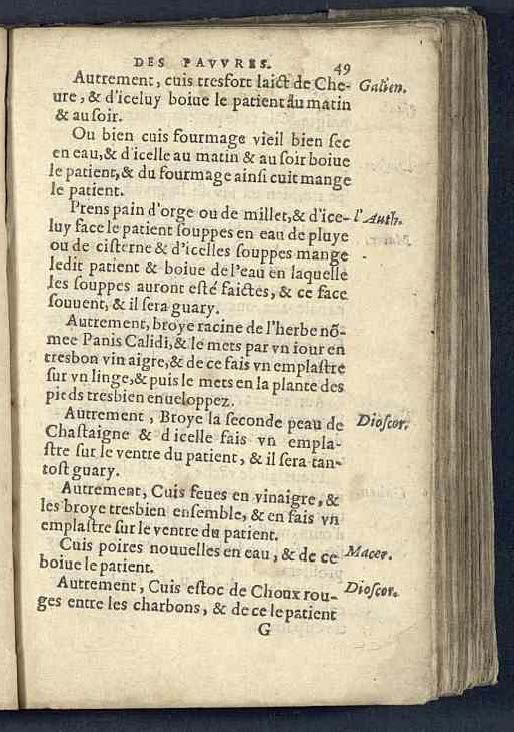 DES PAVVRES. 49
Autrement, cuis tresfort laict de Che- Galien.
ure, & d'iceluy boiue le patient au matin
& au soir.
Ou bien cuis fourmage vieil bien sec
en eau, & d'icelle au matin & au soir boiue
le patient, & du fourmage ainsi cuit mange
le patient.
Prens pain d'orge ou de millet, & d'ice- l'Auth.
luy face le patient souppes en eau de pluye
ou de cisterne & d'icelles souppes mange
ledit patient & boiue de l'eau en laquelle
les souppes auront esté faictes, & ce face
souuent, & il sera guary.
Autrement, broye racine de l'herbe nõ-
mee Panis Calidi, & le mets par vn iour en
tresbon vin aigre, & de ce fais vn emplastre
sur vn linge, & puis le mets en la plante des
pieds tresbien enueloppez.
Autrement, Broye la seconde peau de Dioscor.
Chastaigne & d icelle fais vn empla-
stre sur le ventre du patient, & il sera tan-
tost guary.
Autrement, Cuis feues en vinaigre, &
les broye tresbien ensemble, & en fais vn
emplastre sur le ventre du patient.
Cuis poires nouuelles en eau, & de ce Macer.
boiue le patient.
Autrement, Cuis estoc de Choux rou- Dioscor.
ges entre les charbons, & de ce le patient
G